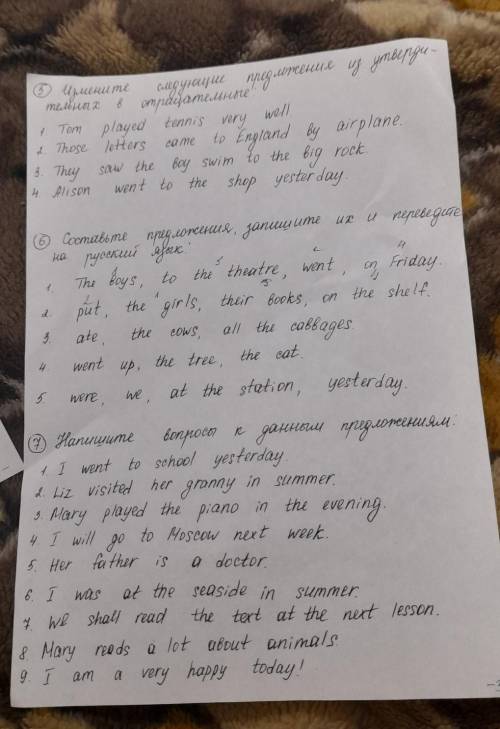 5 Измените следующие предложения из утверди-
тельных в отрицательные!
1. Tom played tennis very well.
2. Those letters came to England by airplane.
3. They saw the boy swim to the big rock.
4. Alison went to the shop yesterday.
6 Составьте предложения, запишите их и переведите
на русский язык:
1. The boys, to the theatre, went, on Friday.
2. put, the girls, their books, on the shelf.
3. ate, the cows, all the cabbages.
4. went up, the tree, the cat.
5. were, we, at the station, yesterday.
7 Напишите вопросы к данным предложениям:
1. I went to school yesterday.
2. Liz visited her granny in summer.
3. Mary played the piano in the evening.
4. I will go to Moscow next week.
5. Her father is a doctor.
6. I was at the seaside in summer.
7. We shall read the text at the next lesson.
8. Mary reads a lot about animals.
9. I am a very happy today!